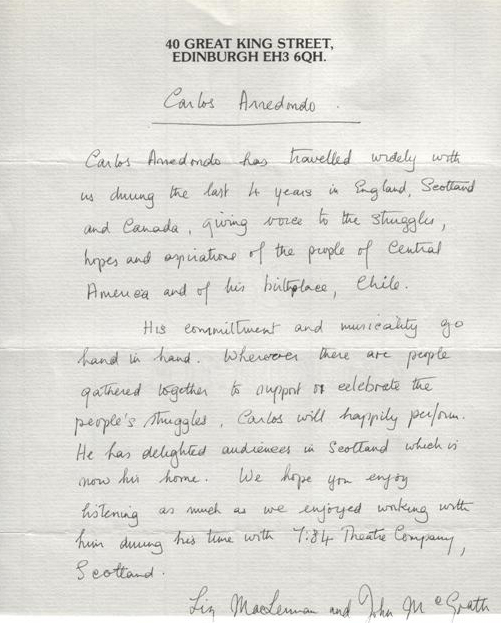 40 GREAT KING STREET,
EDINBURGH EH3 6QH.
Carlos Arredondo.
Carlos Arredondo has travelled widely with
us during the last 4 years in England, Scotland
and Canada, giving voice to the struggles,
hopes and aspirations of the people of Central
America and of his birthplace, Chile.
His committment and musicality go
hand in hand. Wherever there are people
gathered together to support or celebrate the
people's struggles, Carlos will happily perform.
He has delighted audiences in Scotland which is
now his home. We hope you enjoy
listening as much as we enjoyed working with
him during his time with 7:84 Theatre Company,
Scotland.
Liz MacLennan and John McGrath